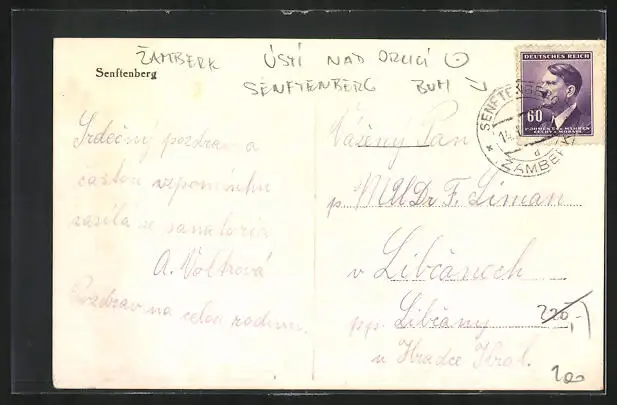 ŽAMBERK ÚSTÍ NAD ORLICÍ
Senftenberg
SENFTENBERG BÜM
DEUTSCHES REICH
60
BÖHMEN UND MÄHREN
ČECHY A MORAVA
SENFTENBERG
14.
d
ŽAMBERK
Srdečný pozdrav a
častou vzpomínku
zasílá ze sanatoria
A. Volková
Pozdrav na celou rodinu.
Vážený Pan
p. MUDr F. Liman
v Libčanech
pp. Libčany
u Hradce Král.
220,-
200